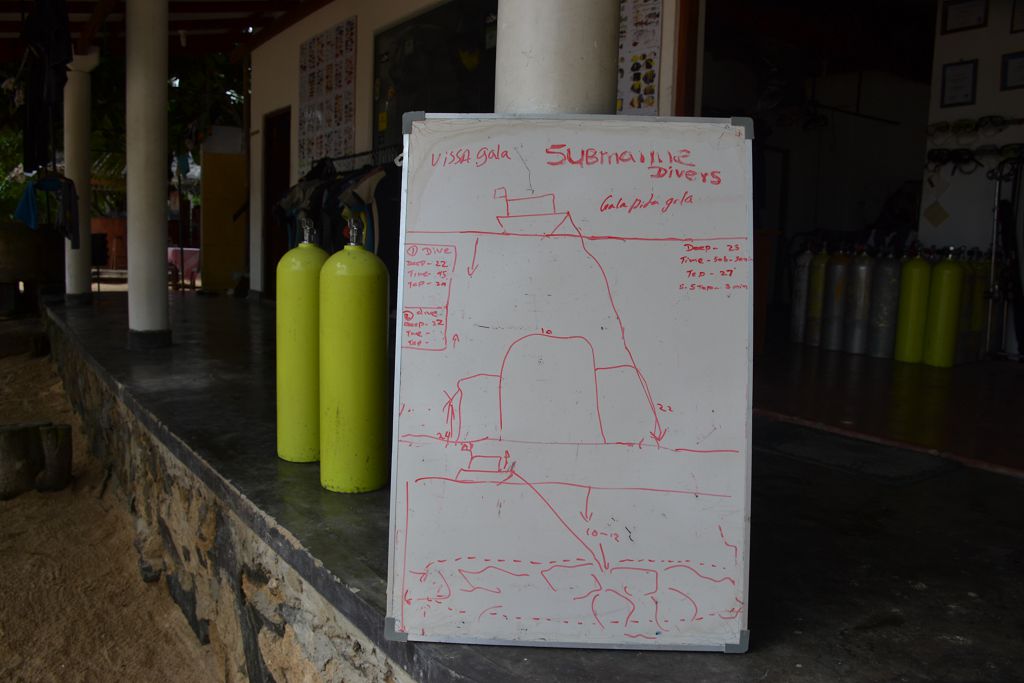 vissa gala
Submarine
Divers
Gala pida gala
① Dive
Deep - 22
Time - 45
Tep - 28
② dive
Deep - 12
Time -
Tep -
Deep - 23
Tep - 27
S. Stop - 3 min
10
22
24
10-12